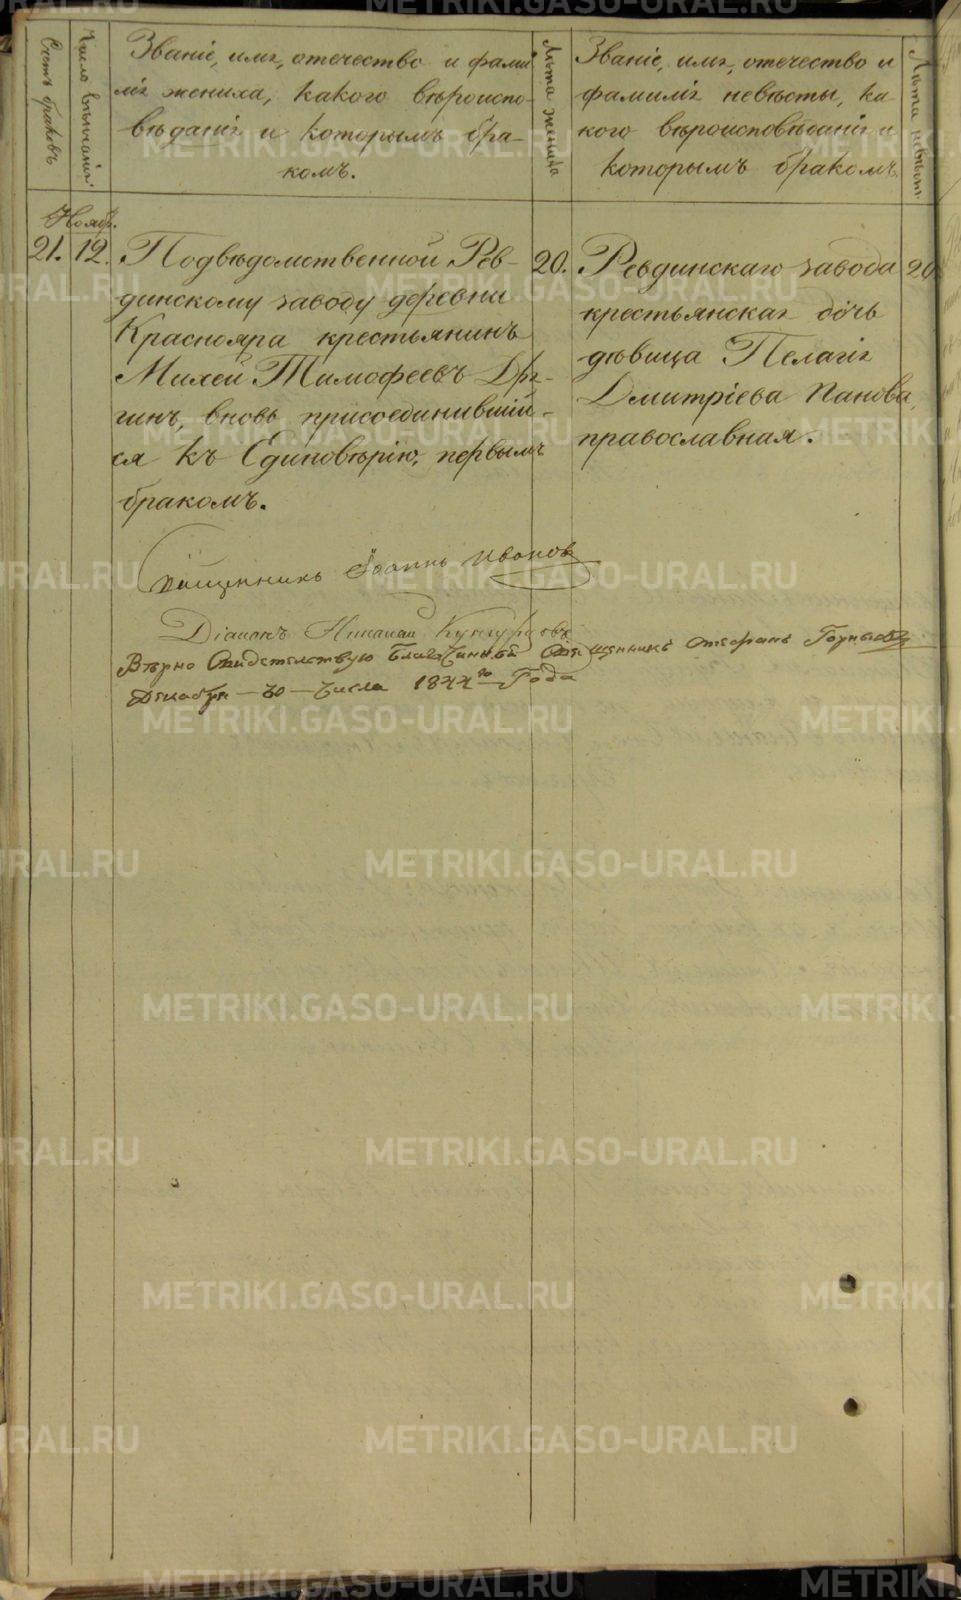 Счетъ браковъ
Число вѣнчанія.
Званіе, имя, отечество и фами
лія жениха, какого вѣроиспо-
вѣданія и которымъ бра-
комъ.
Лѣта жениха
Званіе, имя, отечество и
фамилія невѣсты, ка-
кого вѣроисповѣданія и
которымъ бракомъ
Лѣта невѣст.
Нояб.
21. 12. Подвѣдомственной Рев-
динскому заводу деревни
Краснояра крестьянинъ
Милей Тимофеевъ Дря-
гинъ, вновь присоединившій-
ся къ Единовѣрію, первымъ
бракомъ.
20.
Ревдинскаго завода
крестьянская дочь
дѣвица Пелагія
Дмитріева Панова,
православная.
20
Священникъ Іоаннъ Ивановъ
Діаконъ Кунгуровъ
Вѣрно Свидетельствую Благочинной Священникъ
Декабря 30 Числа 1844 го Года
METRIKI.GASO-URAL.RU